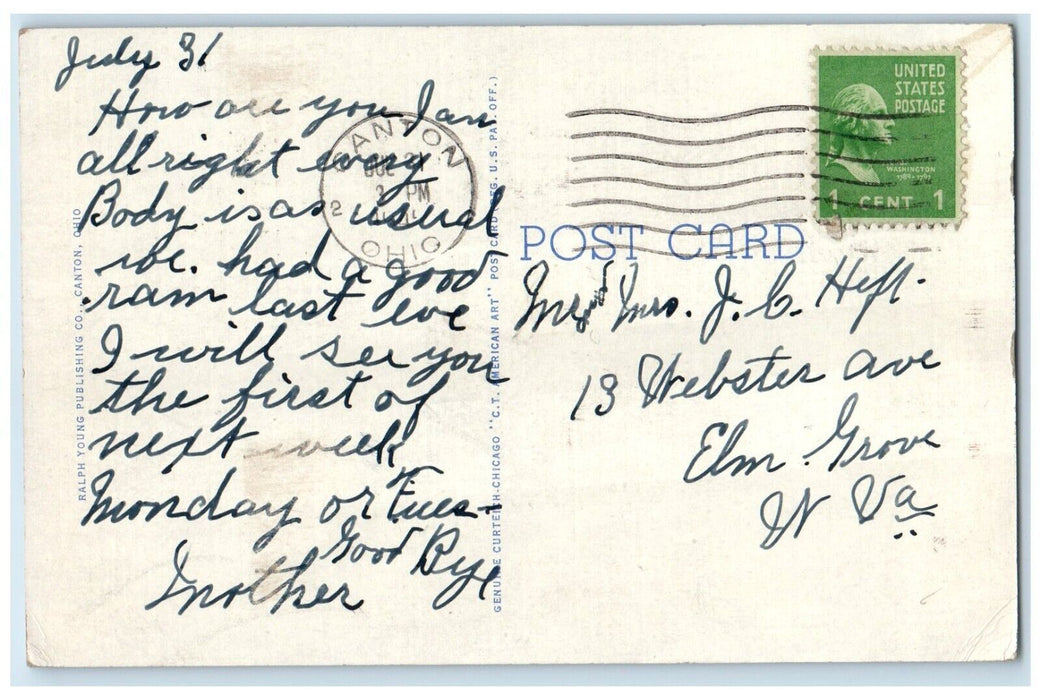 July 31
How are you I am
all right every
Body is as usual
we. had a good
rain last eve
I will see you
the first of
next week
Monday or Tues-
Good Bye
Mother
CANTON
JUL 31
3 PM
OHIO
UNITED
STATES
POSTAGE
WASHINGTON
1789-1797
1 CENT 1
POST CARD
Mr and Mrs. J. C. Heft.
13 Webster ave
Elm. Grove
W Va
RALPH YOUNG PUBLISHING CO., CANTON, OHIO
GENUINE CURTEICH-CHICAGO "C.T. AMERICAN ART" POST CARD (REG. U.S. PAT. OFF.)